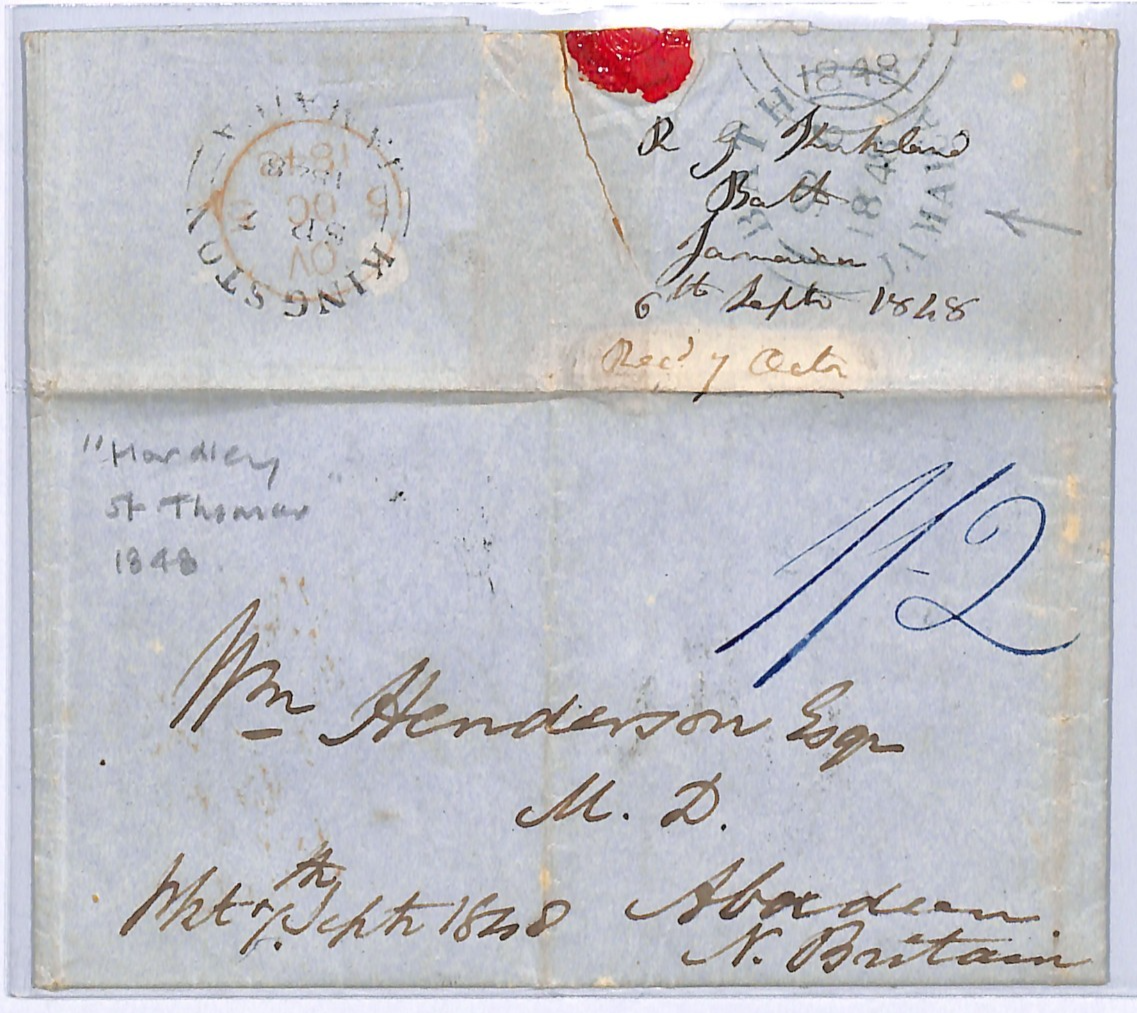 KINGSTON
JAMAICA
1848
OC
1848
BATH
JAMAICA
1848
R J
Bath
Jamaica
6th Septr 1848
Recd 7 Octr
"Hardley
St Thomas
1848
1/2
Wm Henderson Esqr
M. D.
Pkt 7th Septr 1848
Aberdeen
N. Britain